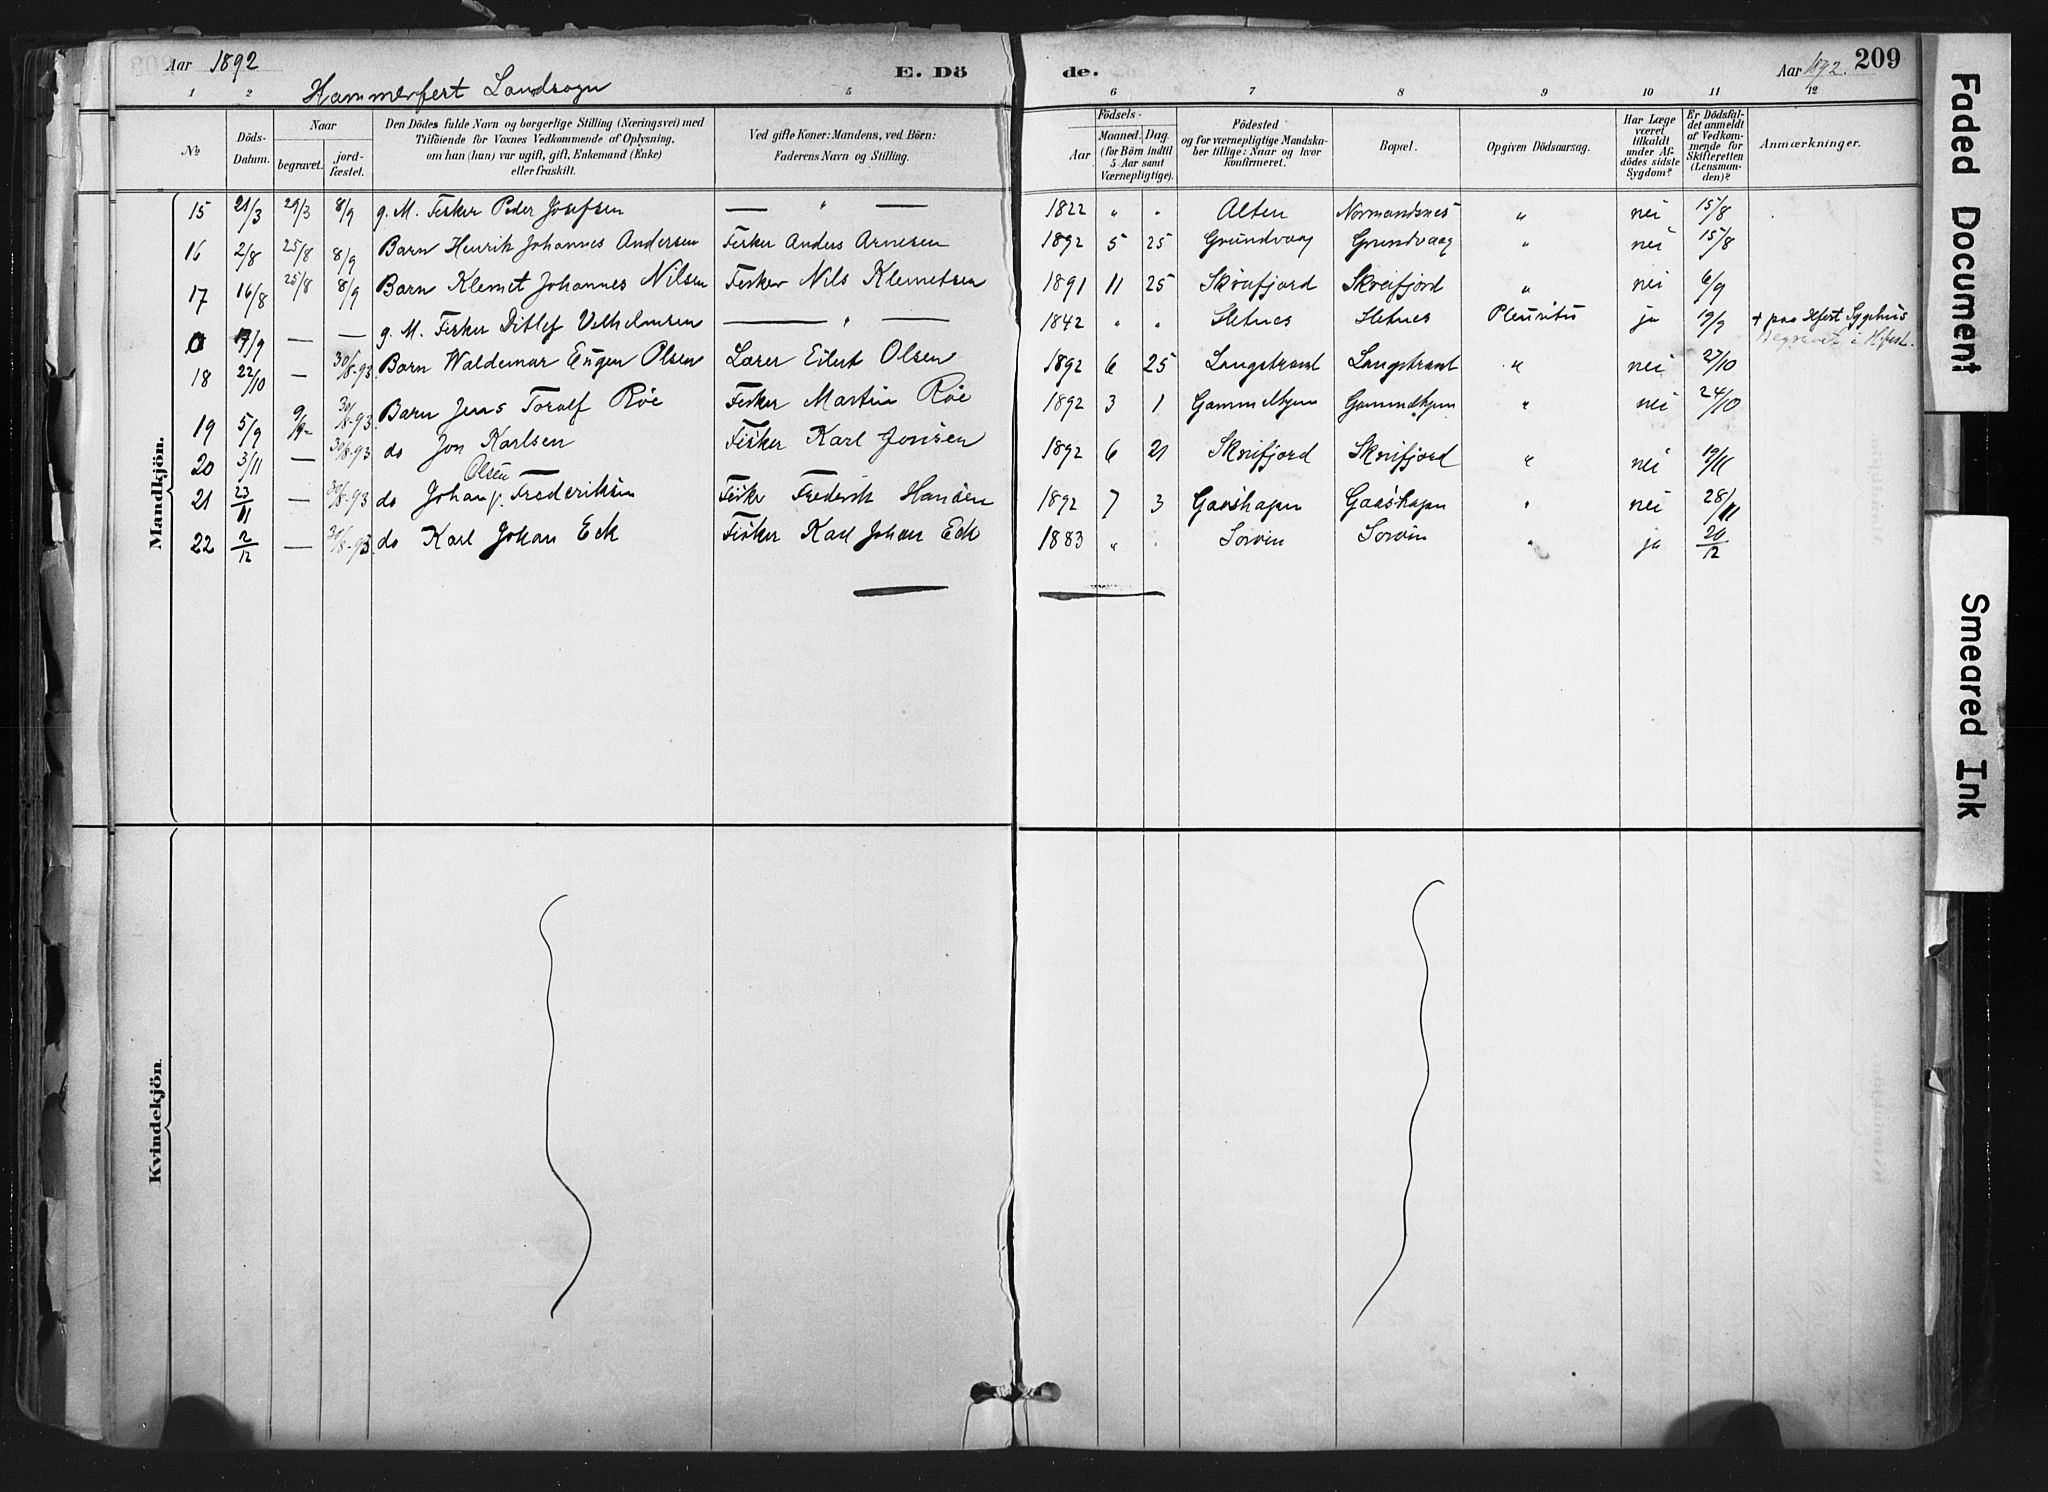 Aar 1892
E. Dö
de.
Aar 1892.
209
Hammerfest Landsogn
1 2 3 5 6 7 8 9 10 11 12
No
Döds-Datum.
Naar
begravet.
jord-fæstet.
Den Dödes fulde Navn og borgerlige Stilling (Næringsvei) med
Tilföiende for Voxnes Vedkommende af Oplysning,
om han (hun) var ugift, gift, Enkemand (Enke)
eller fraskilt.
Ved gifte Koner: Mandens, ved Börn:
Faderens Navn og Stilling.
Födsels-
Aar
Maaned. Dag.
(for Börn indtil
5 Aar samt
Værnepligtige).
Födested
og for værnepligtige Mandska-
ber tillige: Naar og hvor
konfirmeret.
Bopæl.
Opgiven Dödsaarsag.
Har Læge
været
tilkaldt
under Af-
dödes sidste
Sygdom?
Er Dödsfal-
det anmeldt
af Vedkom-
mende for
Skifteretten
(Lensman-
den)?
Anmærkninger.
Mandkjön.
15 21/3 29/3 8/9 g. M. Fisker Peder Josefsen — " — 1822 " " Alten Normandsnes " nei 15/8
16 2/8 25/8 8/9 Barn Henrik Johannes Andersen Fisker Anders Arnesen 1892 5 25 Grundvaag Grundvaag " nei 15/8
17 16/8 25/8 8/9 Barn Klemet Johannes Nilsen Fisker Nils Klemetsen 1891 11 25 Skreifjord Skreifjord " nei 6/9
0 17/9 — — g. M. Fisker Ditlef Vilhelmsen — " — 1842 " " Sletnes Sletnes Pleuritis ja 19/9 + paa Hfest Sygehus
Begravet i Hfest.
18 22/10 — 30/8-93 Barn Waldemar Eugen Olsen Lærer Eilert Olsen 1892 6 25 Langstrand Langstrand " nei 27/10
19 5/9 9/9 30/8-93 Barn Jens Toralf Röe Fisker Martin Röe 1892 3 1 Gammelhjem Gammelhjem " nei 24/10
20 3/11 — 30/8-93 do Jon Karlsen Fisker Karl Jonsen 1892 6 21 Skreifjord Skreifjord " nei 19/11
Olsen
21 23/11 — 30/8-93 do Johan Frederiksen Fisker Frederik Hansen 1892 7 3 Gaashopen Gaashopen " nei 28/11
22 2/12 — 30/8-93 do Karl Johan Eck Fisker Karl Johan Eck 1883 " " Soröen Soröen " ja 20/12
Kvindekjön
Faded Document
Smeared Ink